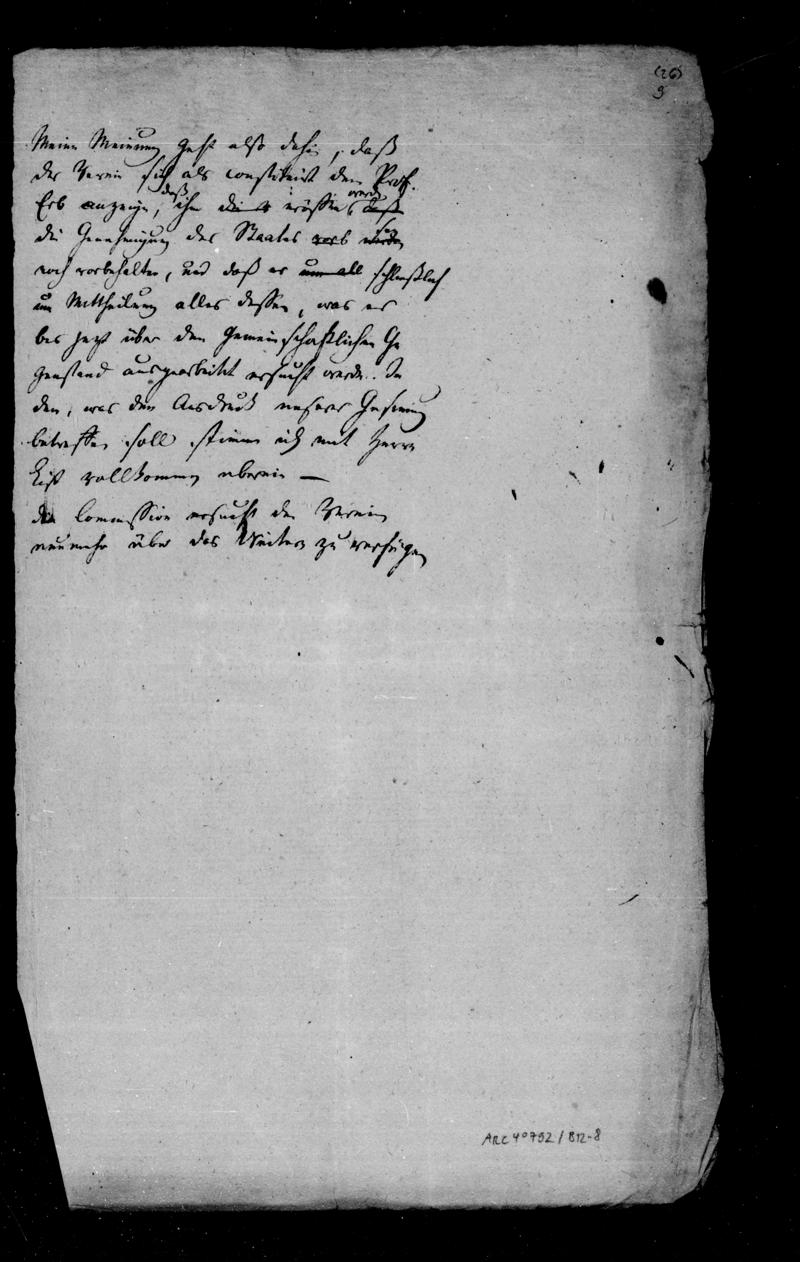 (26)
9
Meine Meinung geht also dahin, daß
der Verein sich als constituirt dem Prof.
daß werde
Erb anzeige, ihm die eröffnet daß
die Genehmigung des Staates vorb
noch vorbehalten, und daß er um all schließlich
um Mittheilung alles dessen, was er
bis jetzt über den gemeinschaftlichen Ge
genstand ausgearbeitet ersucht werde. In
dem, was den Ausdruck unserer Gesinnung
betreffen soll stimme ich mit Herrn
List vollkommen überein —
die Commission ersucht den Verein
nunmehr über das Weitere zu verfügen
ARC 4° 792 / B12-8